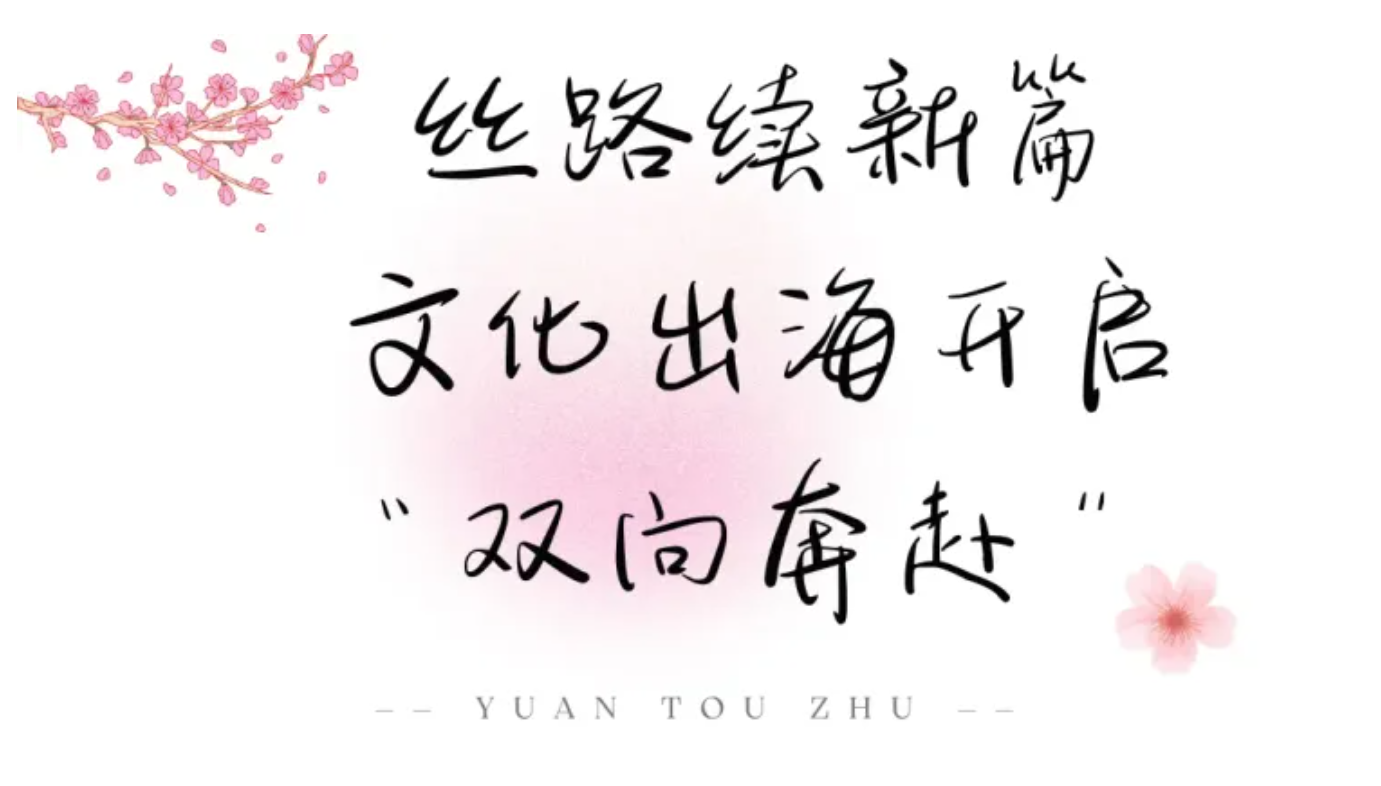 丝路续新篇
文化出海开启
“双向奔赴”
—— YUAN TOU ZHU ——